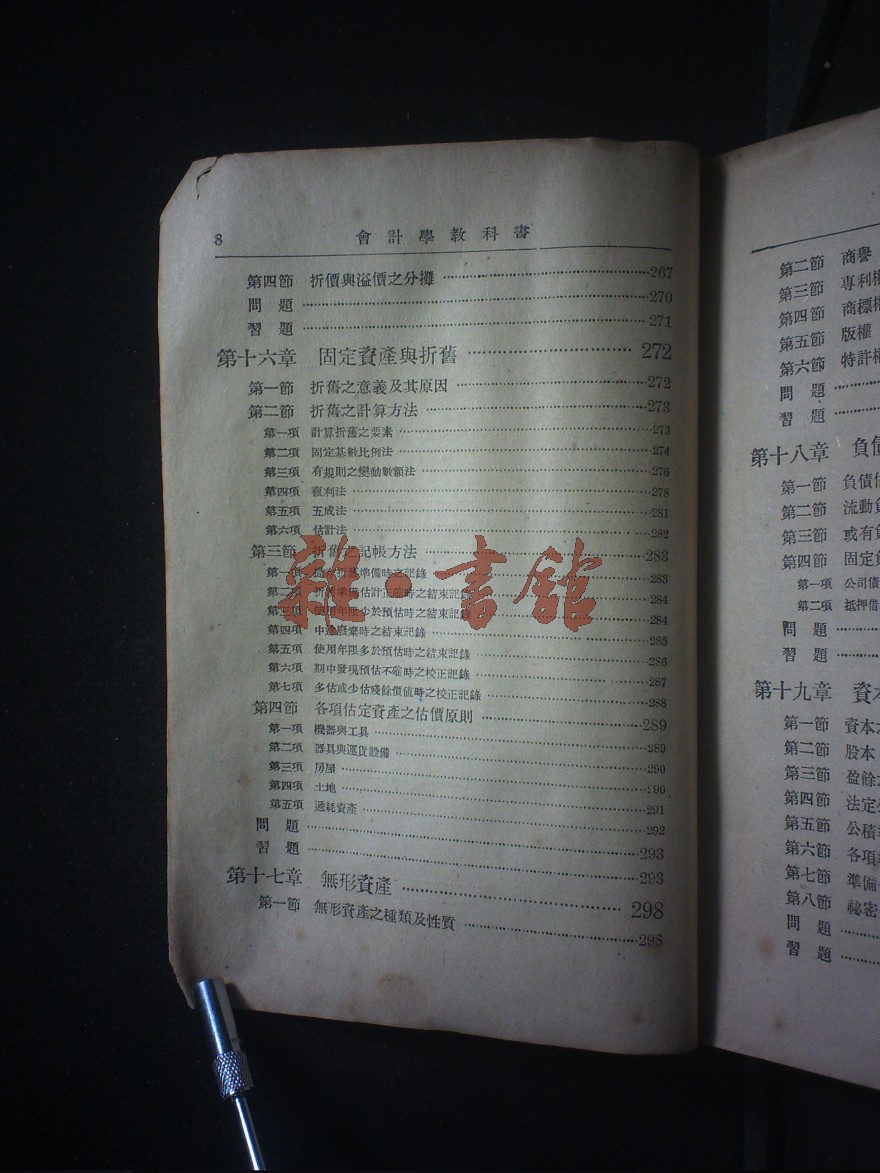 8 會計學教科書
第四節 折價與溢價之分攤 267
問題 270
習題 271
第十六章 固定資產與折舊 272
第一節 折舊之意義及其原因 272
第二節 折舊之計算方法 273
第一項 計算折舊之要素 273
第二項 固定基數比例法 274
第三項 有規則之變動數額法 276
第四項 複利法 278
第五項 五成法 281
第六項 估計法 282
第三節 折舊之記帳方法 283
第一項 折舊準備時之記錄 283
第二項 折舊準備估計正確時之結束記錄 284
第三項 使用年限少於預估時之結束記錄 284
第四項 中途廢棄時之結束記錄 285
第五項 使用年限多於預估時之結束記錄 286
第六項 期中發現預估不確時之校正記錄 287
第七項 多估或少估殘餘價值時之校正記錄 288
第四節 各項估定資產之估價原則 289
第一項 機器與工具 289
第二項 器具與運貨設備 290
第三項 房屋 190
第四項 土地 291
第五項 遞耗資產 292
問題 293
習題 293
第十七章 無形資產 298
第一節 無形資產之種類及性質 298
雜·書館
第二節 商譽
第三節 專利權
第四節 商標權
第五節 版權
第六節 特許權
問題
習題
第十八章 負債
第一節 負債
第二節 流動
第三節 或有
第四節 固定
第一項 公司債
第二項 抵押借
問題
習題
第十九章 資本
第一節 資本
第二節 股本
第三節 盈餘
第四節 法定
第五節 公積
第六節 各項
第七節 準備
第八節 祕密
問題
習題